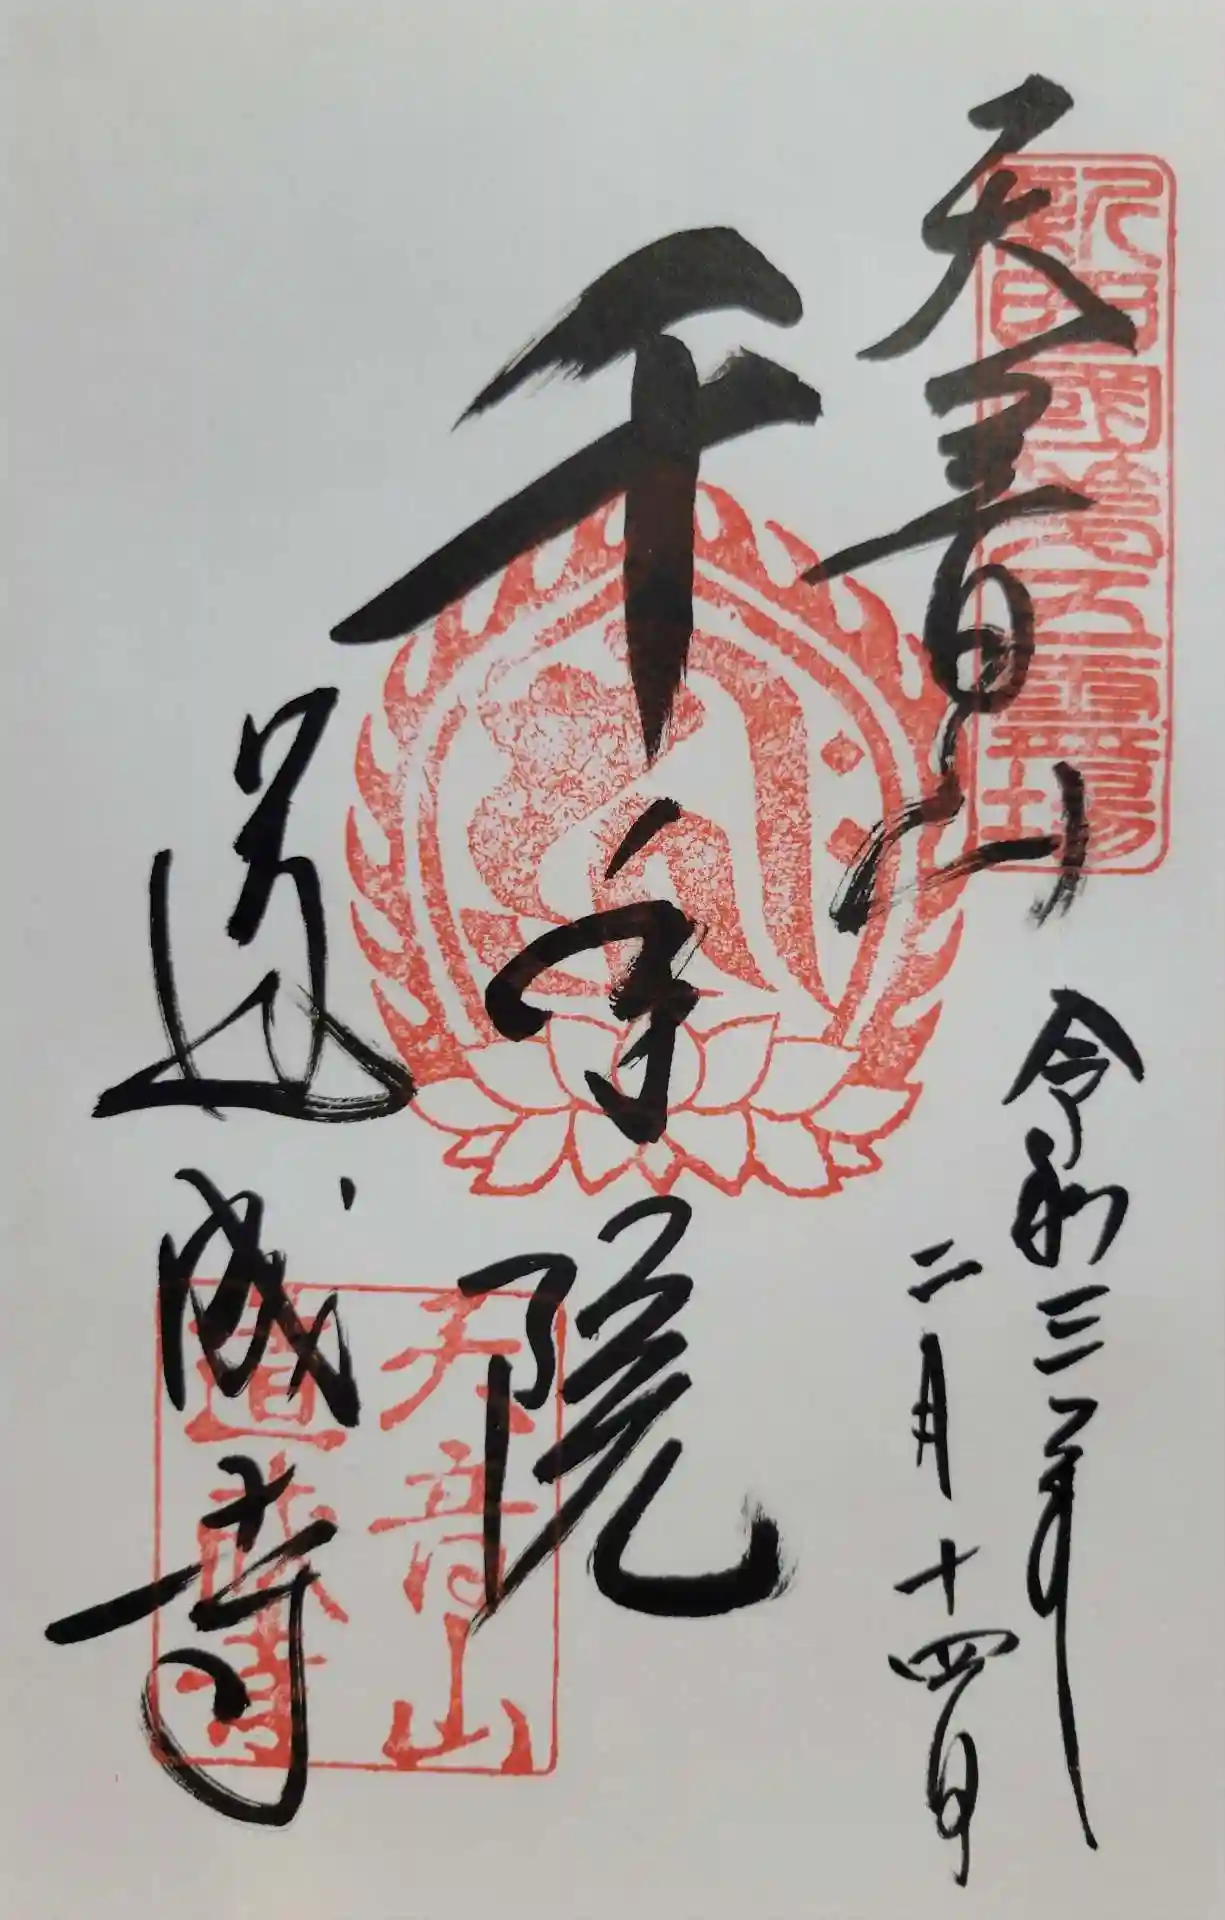 新西國第五霊場
天音山
令和三年
二月十四日
千手院
道成寺
天音山
道成寺